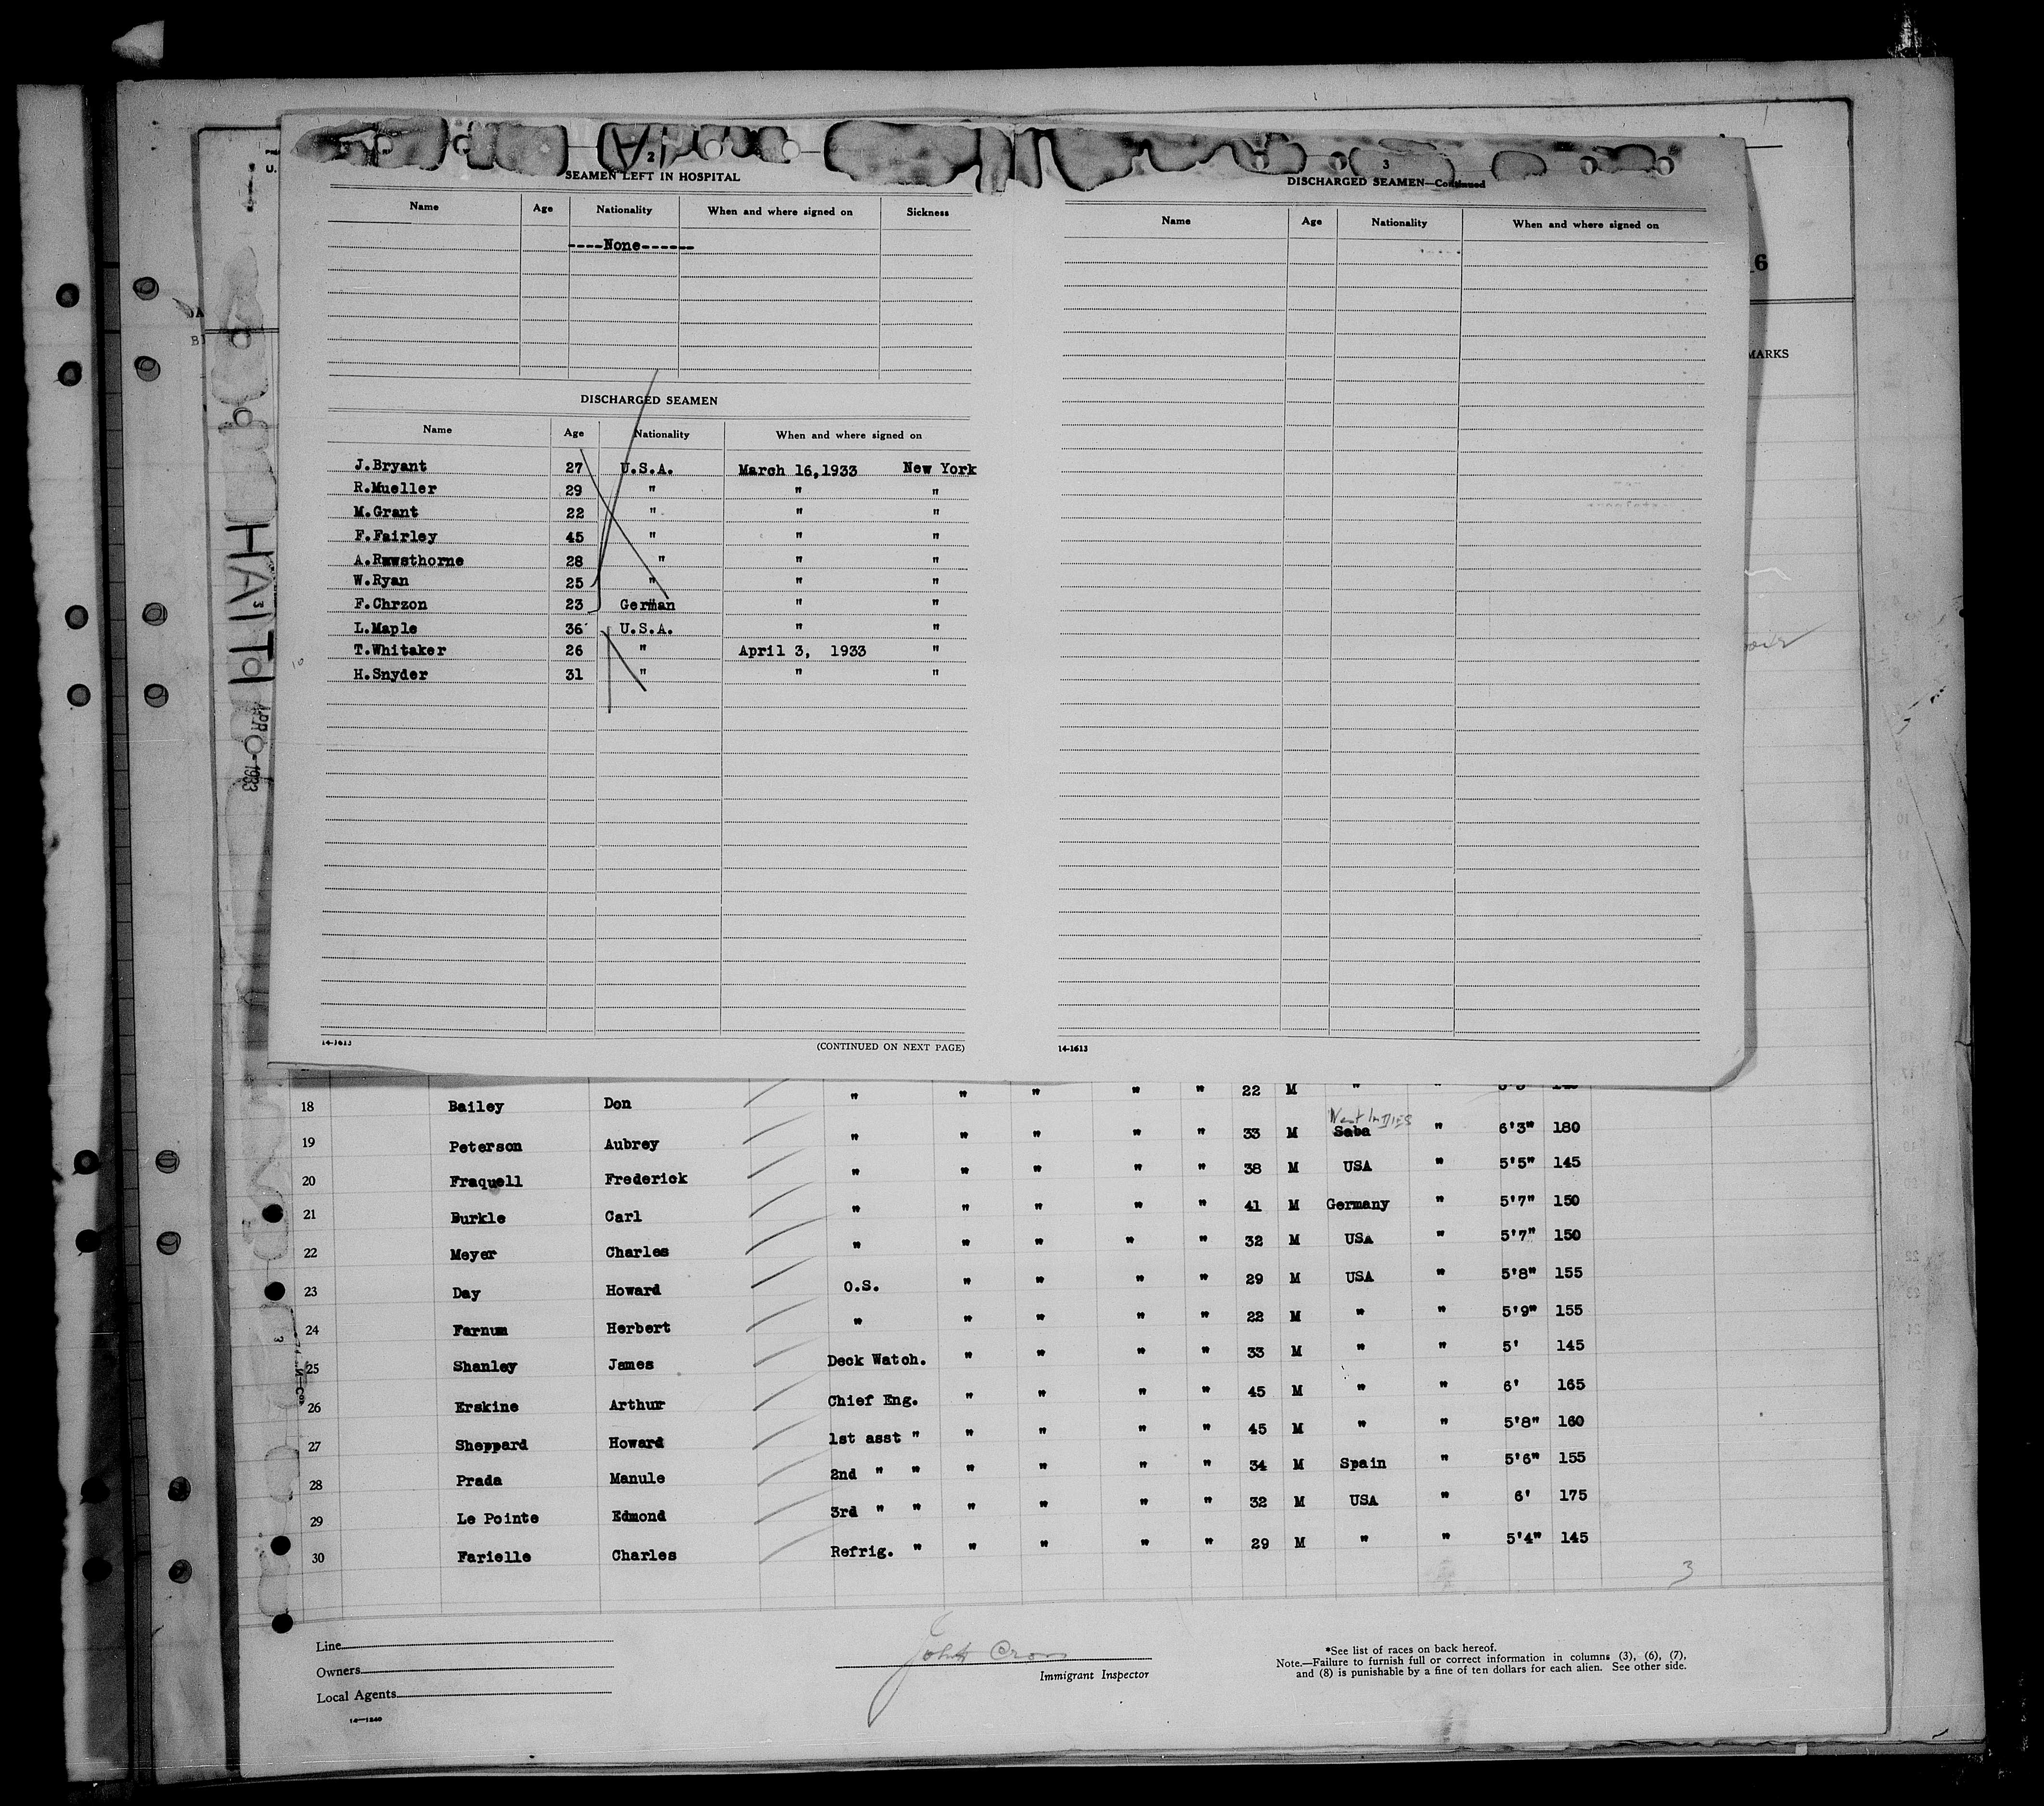 2
SEAMEN LEFT IN HOSPITAL
Name Age Nationality When and where signed on Sickness
----None------
DISCHARGED SEAMEN
Name Age Nationality When and where signed on
J.Bryant 27 U.S.A. March 16,1933 New York
R.Mueller 29 " " "
M.Grant 22 " " "
F.Fairley 45 " " "
A.Rawsthorne 28 " " "
W.Ryan 25 " " "
F.Chrzon 23 German " "
L.Maple 36 U.S.A. " "
T.Whitaker 26 " April 3, 1933 "
H.Snyder 31 " " "
14-1613 (CONTINUED ON NEXT PAGE)
3
DISCHARGED SEAMEN—Continued
Name Age Nationality When and where signed on
14-1613
6
MARKS
HAITI
APR 1933
18 Bailey Don " " " " " 22 M " "
19 Peterson Aubrey " " " " " 33 M West Indies Saba " 6'3" 180
20 Fraquell Frederick " " " " " 38 M USA " 5'5" 145
21 Burkle Carl " " " " " 41 M Germany " 5'7" 150
22 Meyer Charles " " " " " 32 M USA " 5'7" 150
23 Day Howard O.S. " " " " 29 M USA " 5'8" 155
24 Farnum Herbert " " " " " 22 M " " 5'9" 155
25 Shanley James Deck Watch. " " " " 33 M " " 5' 145
26 Erskine Arthur Chief Eng. " " " " 45 M " " 6' 165
27 Sheppard Howard 1st asst " " " " " 45 M " " 5'8" 160
28 Prada Manule 2nd " " " " " " 34 M Spain " 5'6" 155
29 Le Pointe Edmond 3rd " " " " " " 32 M USA " 6' 175
30 Farielle Charles Refrig. " " " " " 29 M " " 5'4" 145
3
Line
Owners
Local Agents
14—1240
John Cron
Immigrant Inspector
*See list of races on back hereof.
Note.—Failure to furnish full or correct information in columns (3), (6), (7),
and (8) is punishable by a fine of ten dollars for each alien. See other side.